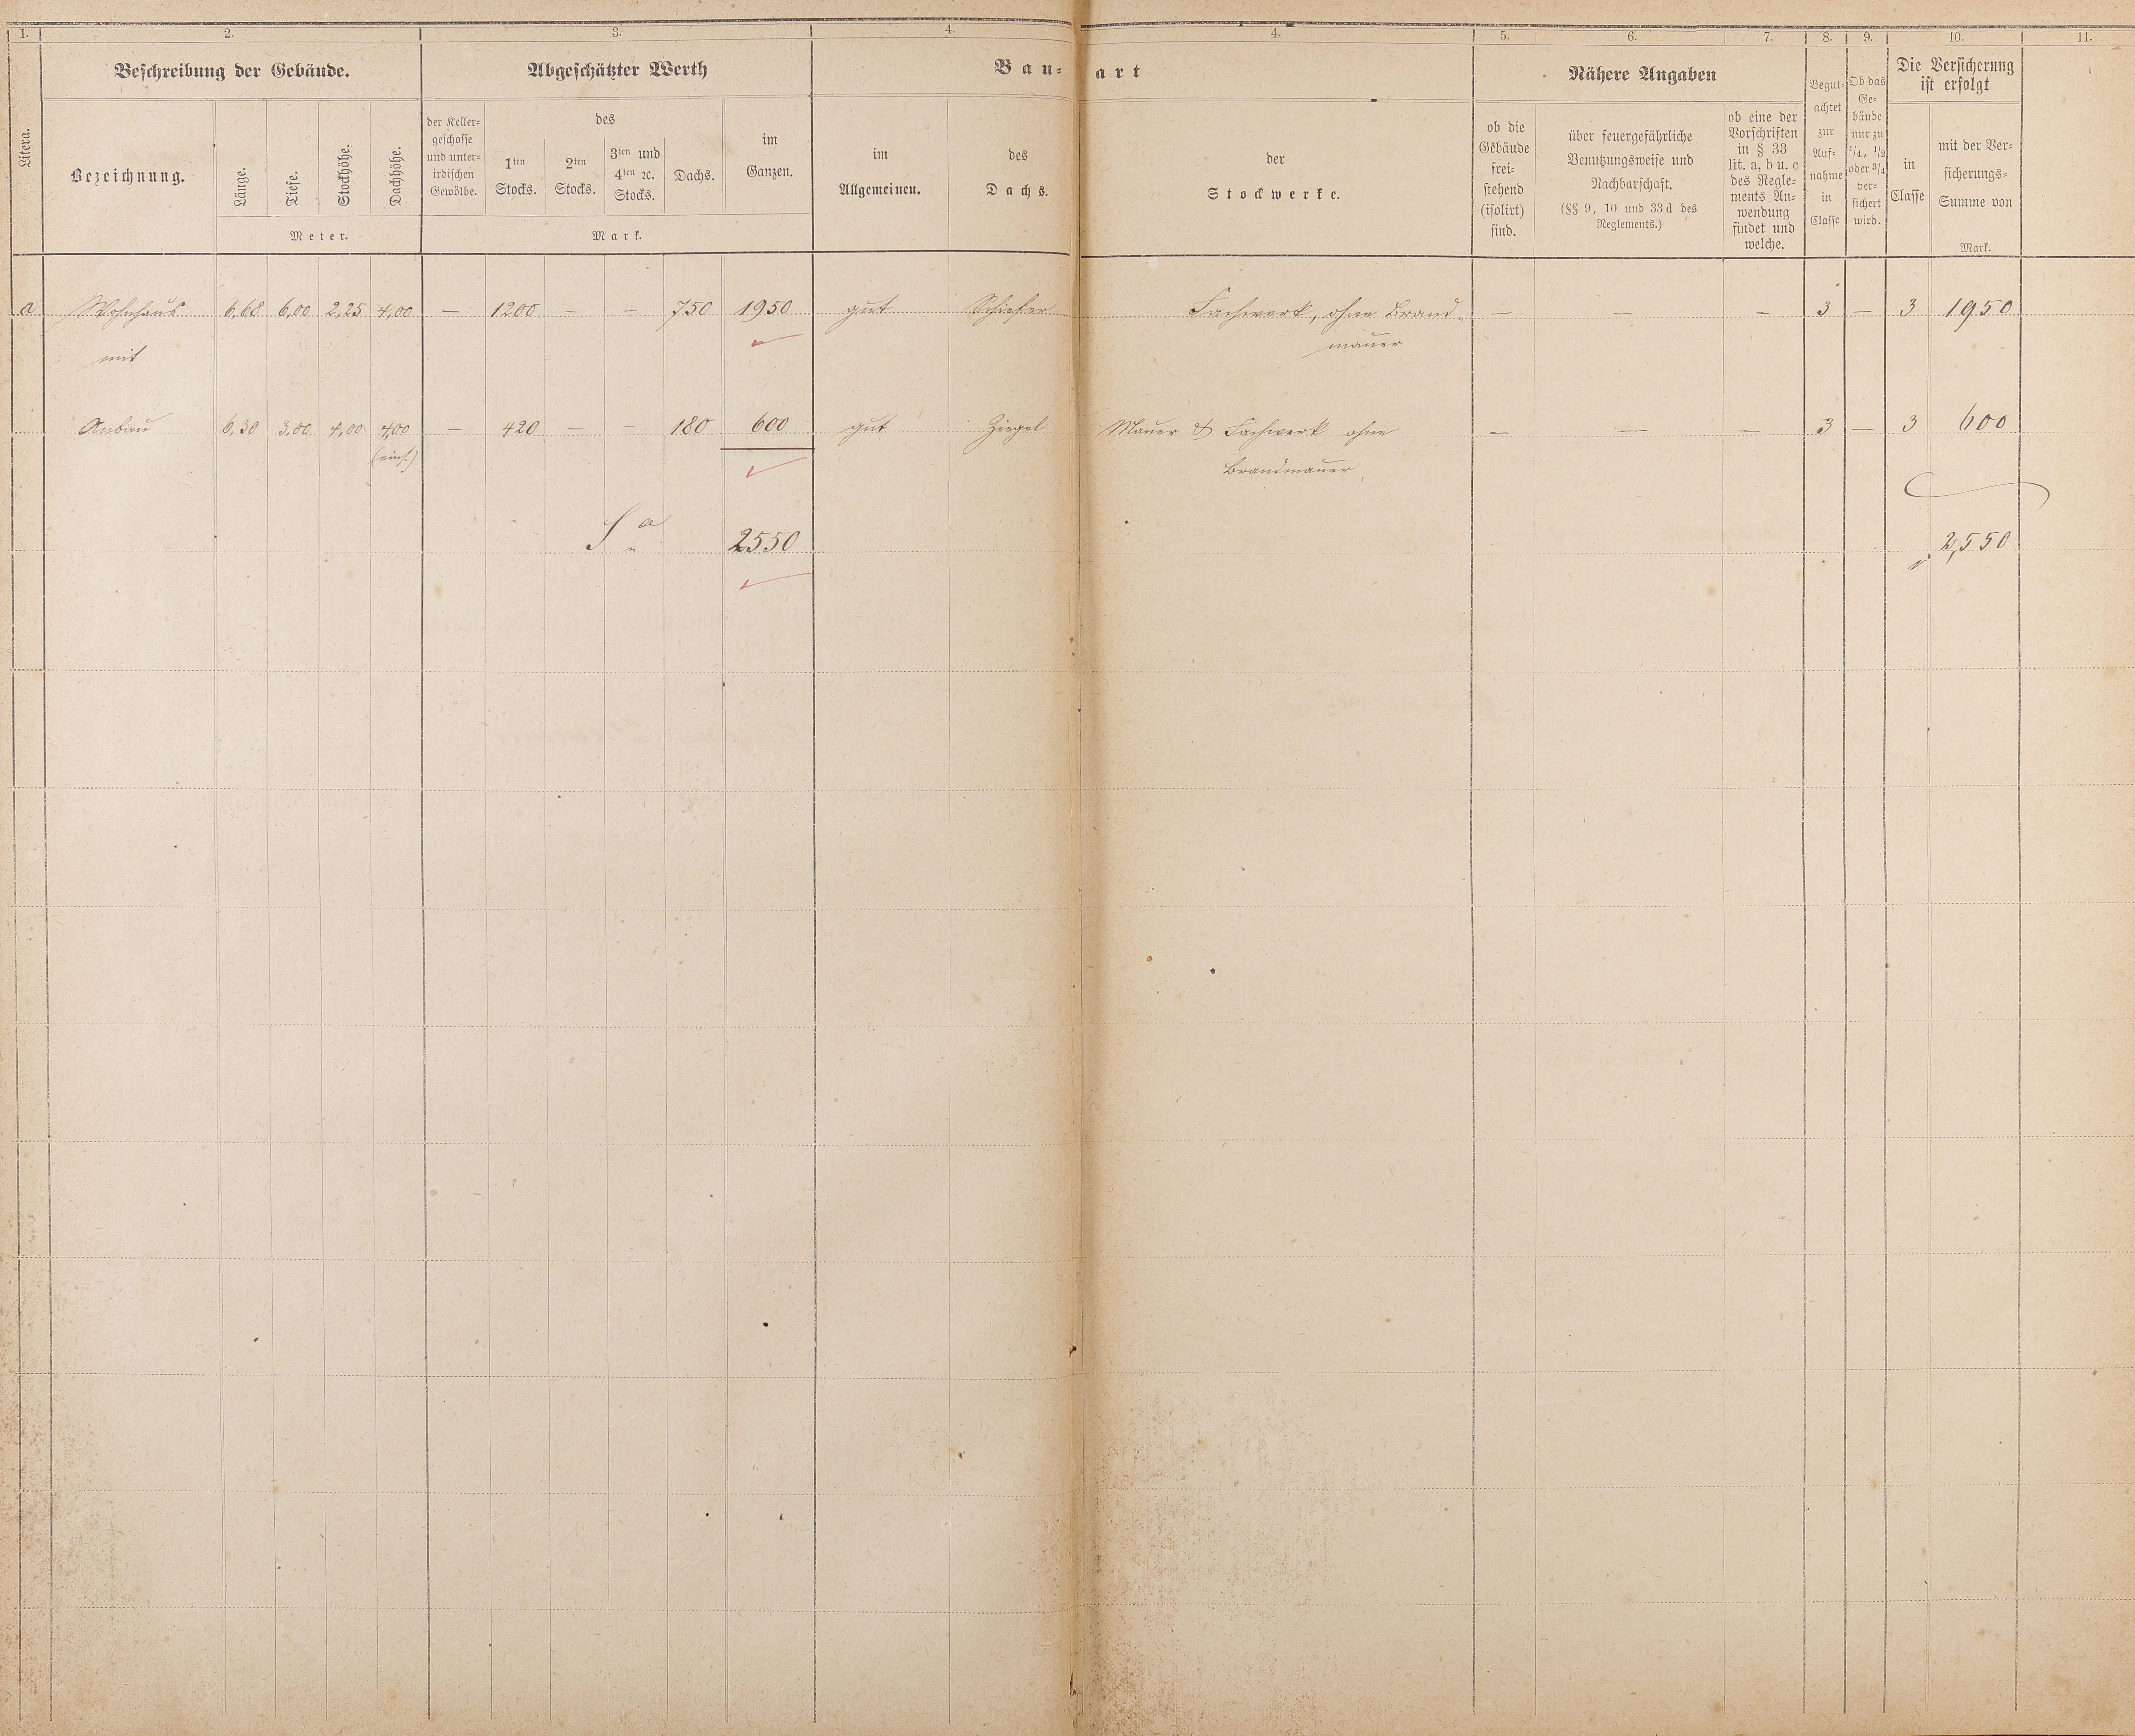 1. 2. 3. 4. 4. 5. 6. 7. 8. 9. 10. 11.
Litera.
Beschreibung der Gebäude.
Bezeichnung.
Länge.
Tiefe.
Stockhöhe.
Dachhöhe.
Meter.
Abgeschätzter Werth
der Keller-
geschosse
und unter-
irdischen
Gewölbe.
des
1ten
Stocks.
2ten
Stocks.
3ten und
4ten ꝛc.
Stocks.
Dachs.
im
Ganzen.
Mark.
Bau-art
im
Allgemeinen.
des
Dachs.
der
Stockwerke.
Nähere Angaben
ob die
Gebäude
frei-
stehend
(isolirt)
sind.
über feuergefährliche
Benutzungsweise und
Nachbarschaft.
(§§ 9, 10 und 33 d des
Reglements.)
ob eine der
Vorschriften
in § 33
lit. a, b u. c
des Regle-
ments An-
wendung
findet und
welche.
Begut-
achtet
zur
Auf-
nahme
in
Classe
Ob das
Ge-
bäude
nur zu
1/4, 1/2
oder 3/4
ver-
sichert
wird.
Die Versicherung
ist erfolgt
in
Classe
mit der Ver-
sicherungs-
Summe von
Mark.
a Wohnhaus 6,68 6,00 2,25 4,00 — 1200 — — 750 1950 gut Schiefer Fachwerk, ohne Brand- — — — 3 — 3 1950
mit mauer
Anbau 6,30 3,00 4,00 4,00 — 420 — — 180 600 gut Ziegel Mauer & Fachwerk ohne — — — 3 — 3 600
(einf.) Brandmauer
Sa 2550 2,550